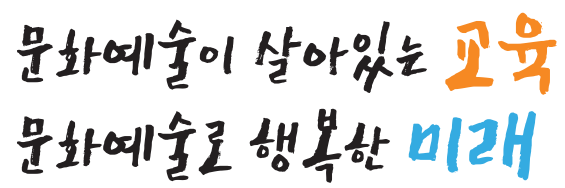 문화예술이 살아있는 교육
문화예술로 행복한 미래